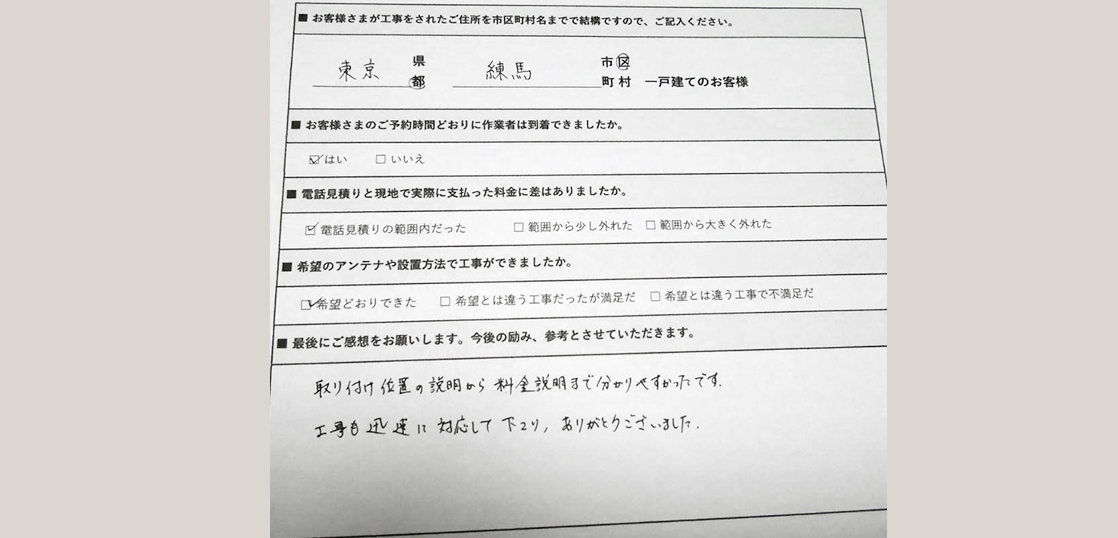 ■ お客様さまが工事をされたご住所を市区町村名までで結構ですので、ご記入ください。
東京 県 練馬 市 区
都 町 村 一戸建てのお客様
■ お客様さまのご予約時間どおりに作業者は到着できましたか。
☑ はい □ いいえ
■ 電話見積りと現地で実際に支払った料金に差はありましたか。
☑ 電話見積りの範囲内だった □ 範囲から少し外れた □ 範囲から大きく外れた
■ 希望のアンテナや設置方法で工事ができましたか。
☑ 希望どおりできた □ 希望とは違う工事だったが満足だ □ 希望とは違う工事で不満足だ
■ 最後にご感想をお願いします。今後の励み、参考とさせていただきます。
取り付け位置の説明から料金説明まで分かりやすかったです。
工事も迅速に対応して下さり、ありがとうございました。